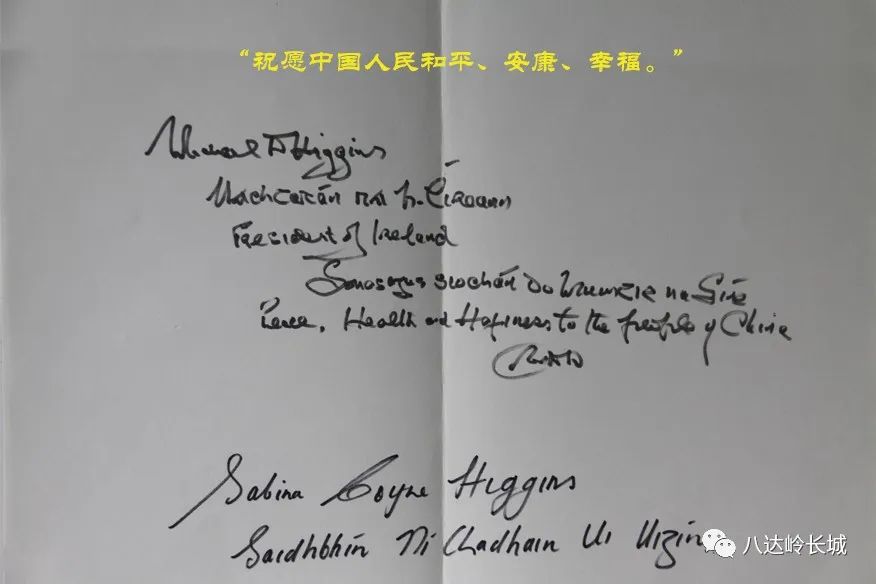 “祝愿中国人民和平、安康、幸福。”
Michael D Higgins
Uachtarán na h-Éireann
President of Ireland
Sonas agus síochán do na Síne
Peace, Health and Happiness to the people of China
Sabina Coyne Higgins
Saidhbhín Ní Chadhain Uí Uigínn
八达岭长城